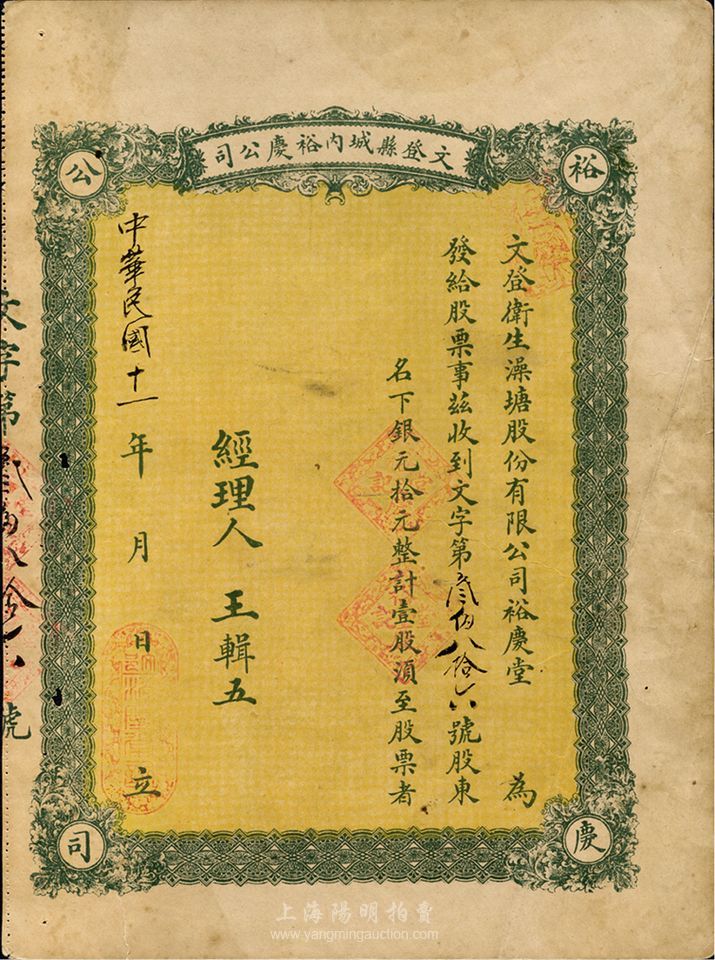 文登縣城內裕慶公司
裕
慶
公
司
文登衛生澡塘股份有限公司裕慶堂 為
發給股票事茲收到文字第叁佰八拾六號股東
名下銀元拾元整計壹股須至股票者
經理人 王輯五
中華民國十一年 月 日 立
文字第叁佰八拾六號
上海陽明拍賣
www.yangmingauction.com